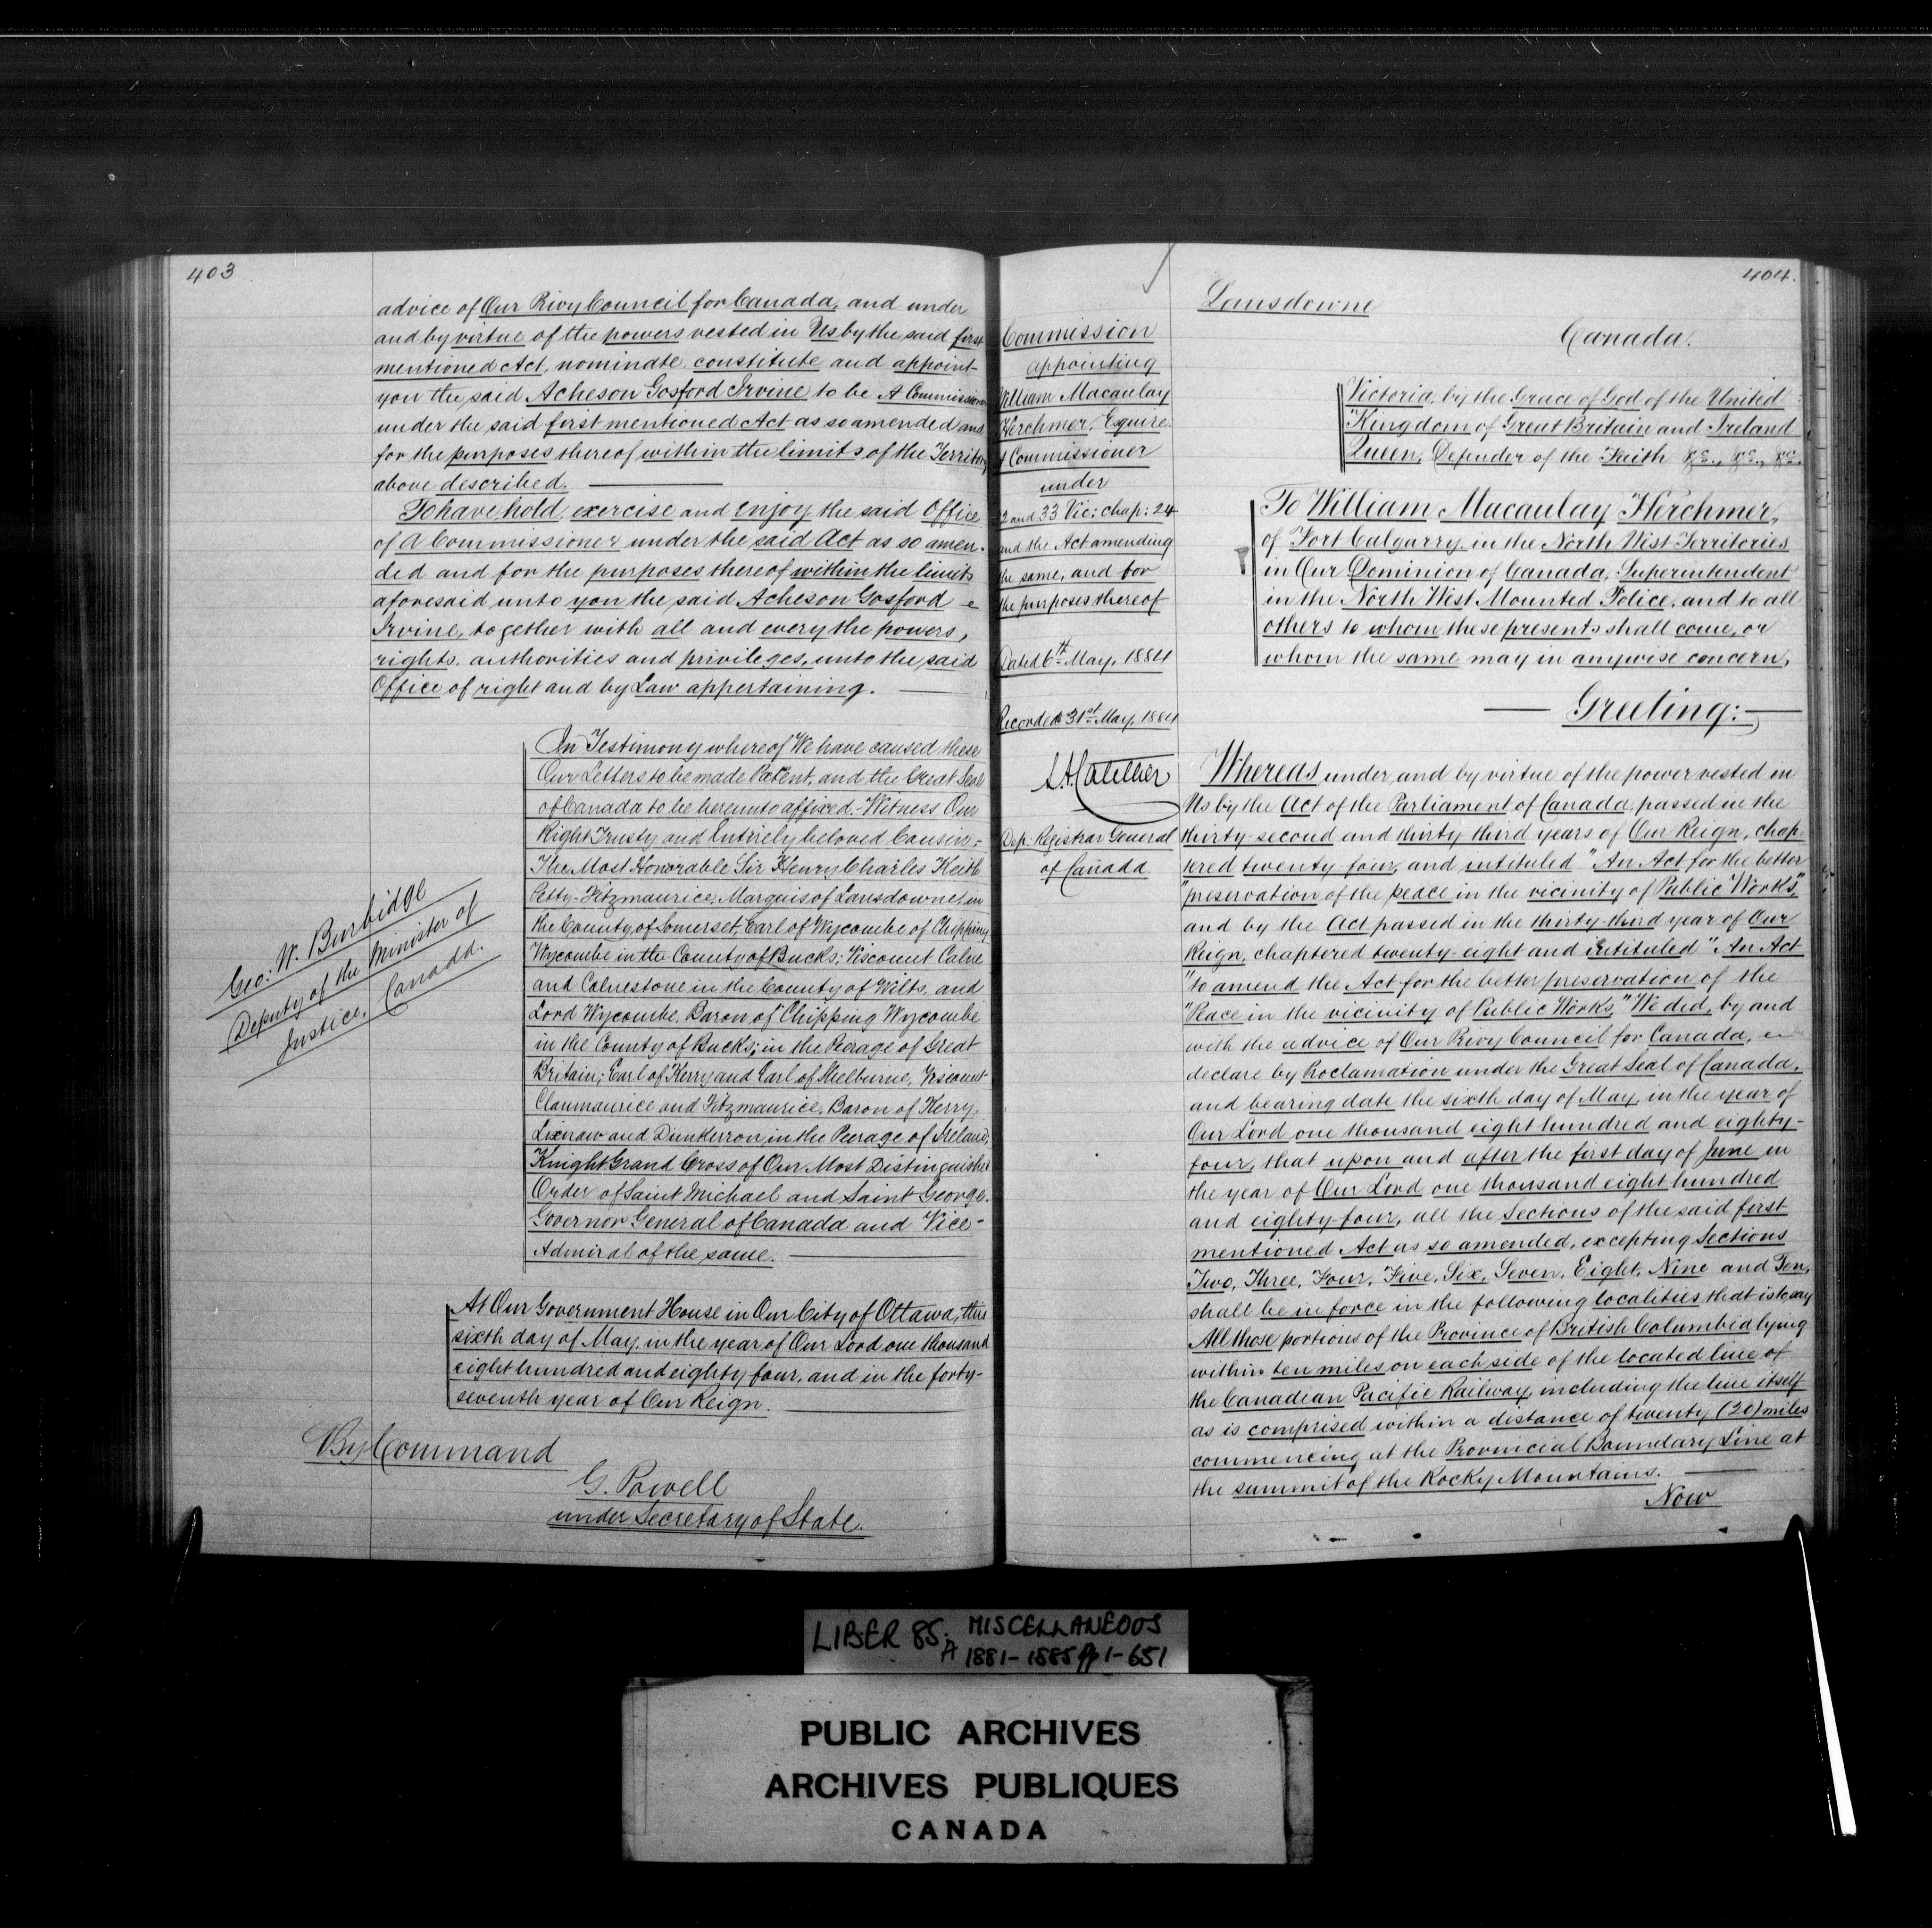 403
advice of Our Privy Council for Canada, and under
and by virtue of the powers vested in Us by the said first
mentioned Act, nominate constitute and appoint
you the said Acheson Gosford Irvine, to be A Commissioner
under the said first mentioned Act as so amended and
for the purposes thereof within the limits of the Territory
above described.
To have, hold, exercise and enjoy the said Office
of A Commissioner under the said Act as so amen-
ded and for the purposes thereof within the limits
aforesaid unto you the said Acheson Gosford
Irvine, together with all and every the powers,
rights. authorities and privileges, unto the said
Office of right and by Law appertaining.
In Testimony whereof We have caused these
Our Letters to be made Patent, and the Great Seal
of Canada to be hereunto affixed.- Witness Our
Right Trusty and Entirely beloved Cousin-
The Most Honorable Sir Henry Charles Keith
Petty-Fitzmaurice, Marquis of Lansdowne, in
the County of Somerset, Earl of Wycombe of Chipping
Wycombe in the County of Bucks; Viscount Calne
and Calnestone in the County of Wilts, and
Lord Wycombe. Baron of Chipping Wycombe
in the County of Bucks; in the Peerage of Great
Britain; Earl of Kerry and Earl of Shelburne, Viscount
Clanmaurice and Fitzmaurice, Baron of Kerry,
Lixnaw and Dunkerron, in the Peerage of Ireland;
Knight Grand Cross of Our Most Distinguished
Order of Saint Michael and Saint George.
Governor General of Canada and Vice-
Admiral of the same.
Geo: W. Burbidge
Deputy of the Minister of
Justice, Canada.
At Our Government House in Our City of Ottawa, this
sixth day of May, in the year of Our Lord one thousand
eight hundred and eighty four, and in the forty-
seventh year of Our Reign.
By Command
G. Powell
under Secretary of State.
404.
Lansdowne
Canada.
Commission
appointing
William Macaulay
Herchmer, Esquire.
A Commissioner
under
32 and 33 Vic: chap: 24
and the Act amending
the same, and for
the purposes thereof
Dated 6th May, 1884
Recorded 31st May, 1884
Dep: Registrar General
of Canada.
Victoria, by the Grace of God of the United
Kingdom of Great Britain and Ireland
Queen, Defender of the Faith &c., &c., &c.
To William Macaulay Herchmer,
of Fort Calgarry in the North West Territories
in Our Dominion of Canada, Superintendent
in the North West Mounted Police, and to all
others to whom these presents shall come, or
whom the same may in anywise concern,
Greeting:
Whereas, under and by virtue of the power vested in
Us by the Act of the Parliament of Canada, passed in the
thirty-second and thirty third years of Our Reign, chap-
tered twenty four, and intituled "An Act for the better
"preservation of the peace in the vicinity of Public Works,"
and by the Act passed in the thirty-third year of Our
Reign, chaptered twenty-eight and intituled "An Act
"to amend the Act for the better preservation of the
"Peace in the vicinity of Public Works," We did, by and
with the advice of Our Privy Council for Canada,
declare by Proclamation under the Great Seal of Canada,
and bearing date the sixth day of May, in the year of
Our Lord one thousand eight hundred and eighty-
four, that upon and after the first day of June in
the year of Our Lord one thousand eight hundred
and eighty-four, all the Sections of the said first
mentioned Act as so amended, excepting Sections
Two, Three, Four, Five, Six, Seven, Eight, Nine and Ten,
shall be in force in the following localities that is to say
All those portions of the Province of British Columbia lying
within ten miles on each side of the located line of
the Canadian Pacific Railway, including the line itself
as is comprised within a distance of twenty (20) miles
commencing at the Provincial Boundary Line at
the summit of the Rocky Mountains.
Now
LIBER 85. A MISCELLANEOUS
1881-1885 pp 1-651
PUBLIC ARCHIVES
ARCHIVES PUBLIQUES
CANADA